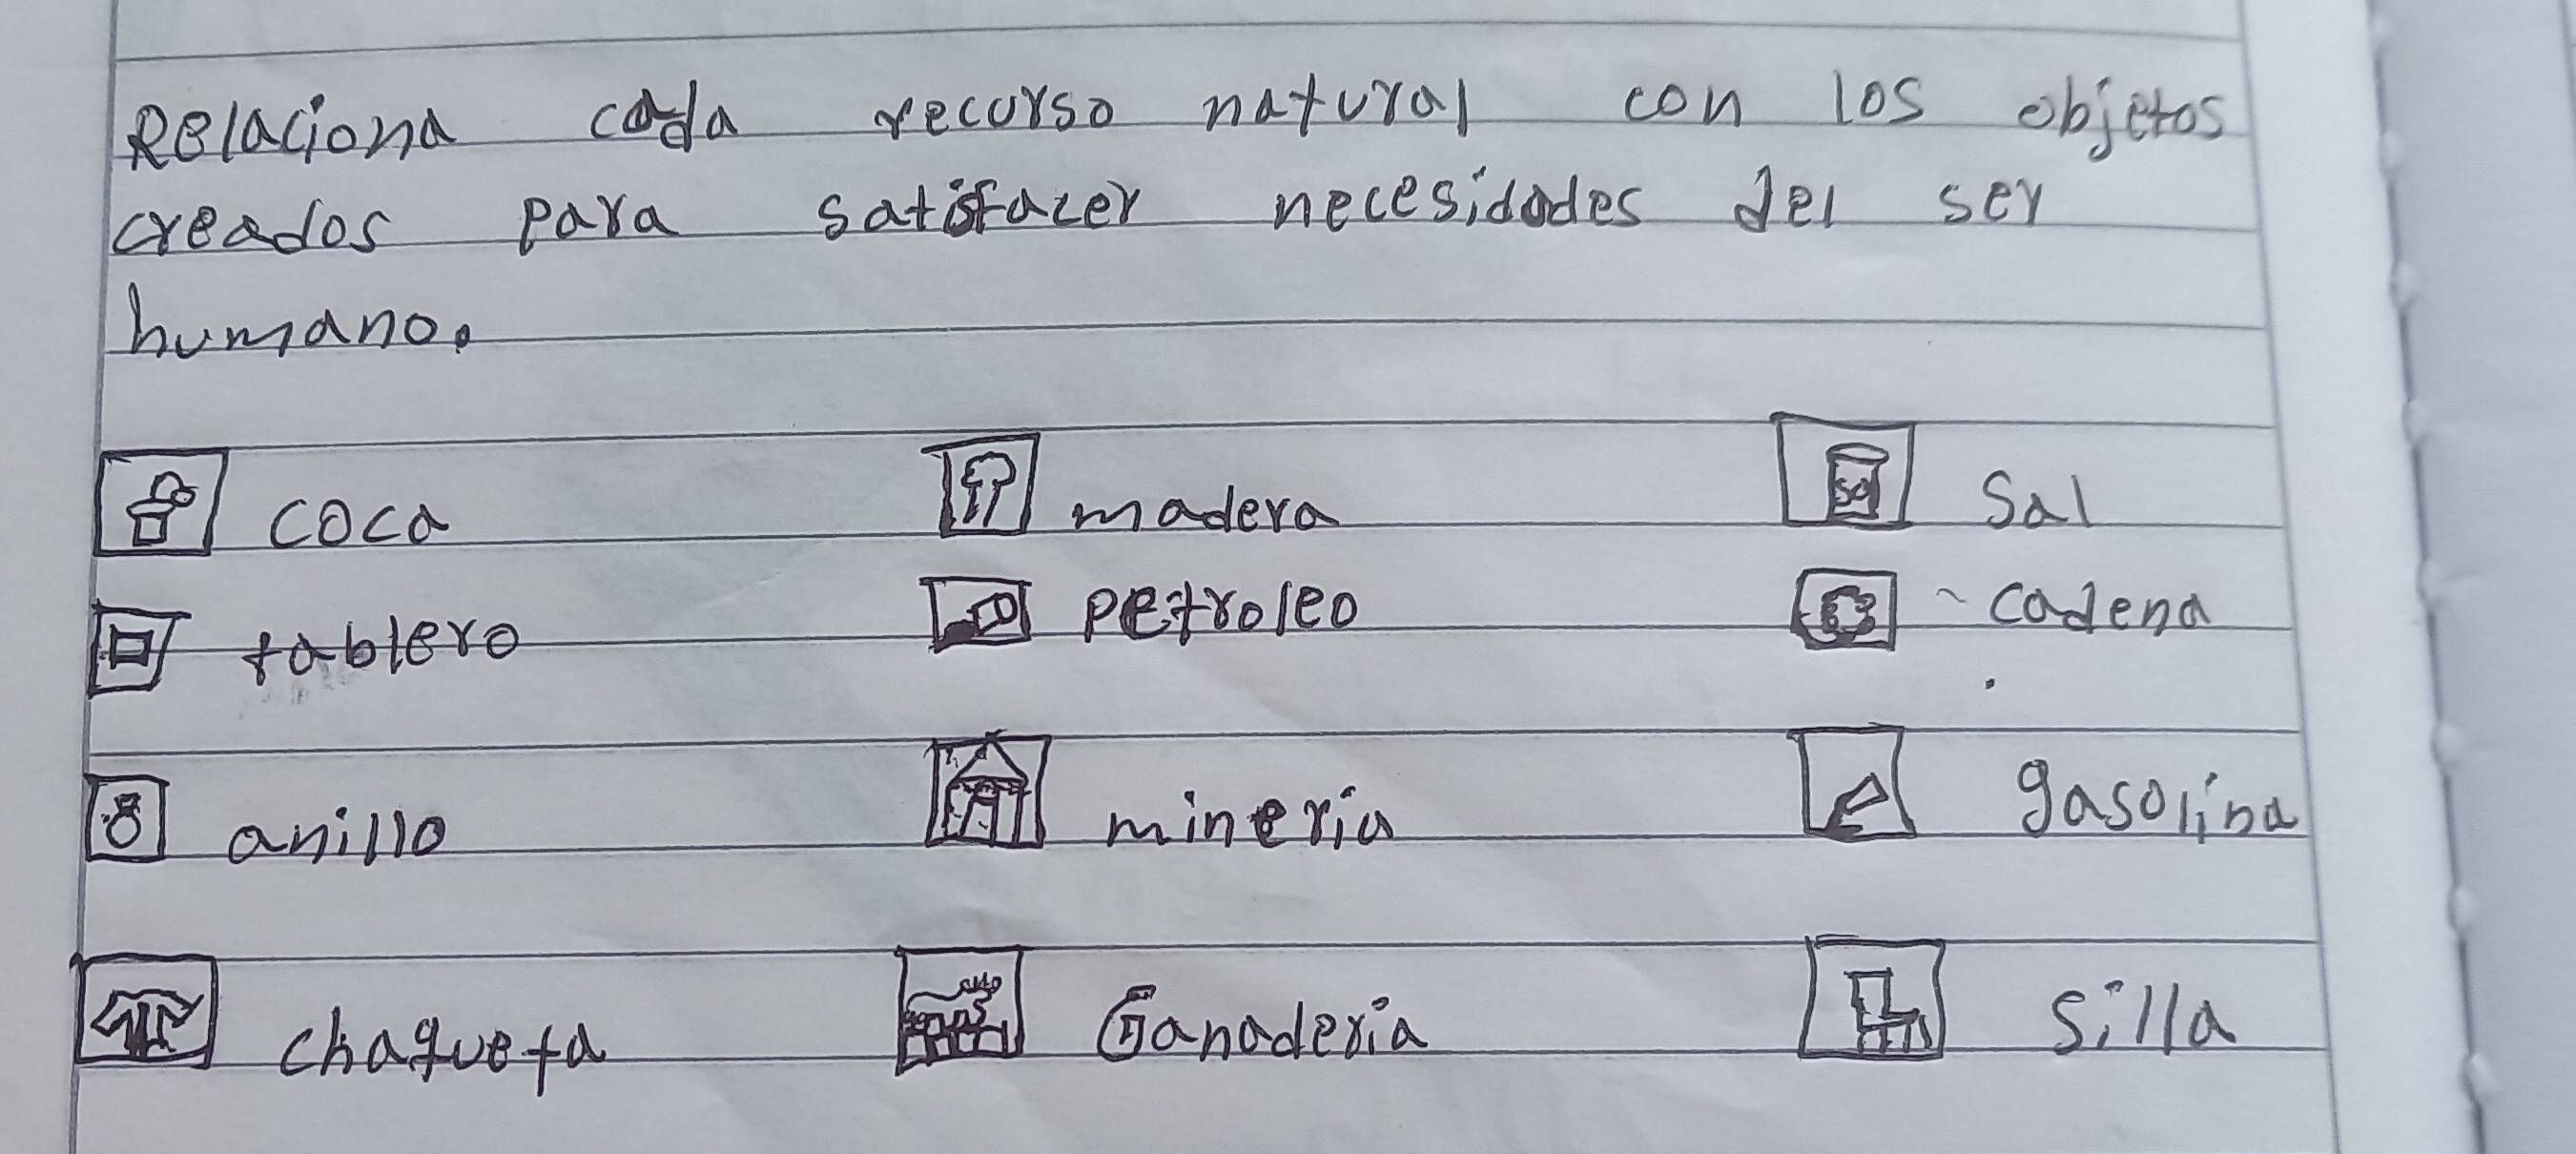 Relaciona cada recurso natural con los objetos
creados para satisfacer necesidades del ser
humano.
coca madera sal Sal
tablero petroleo cadena
anillo mineria gasolina
chaqueta Ganaderia silla